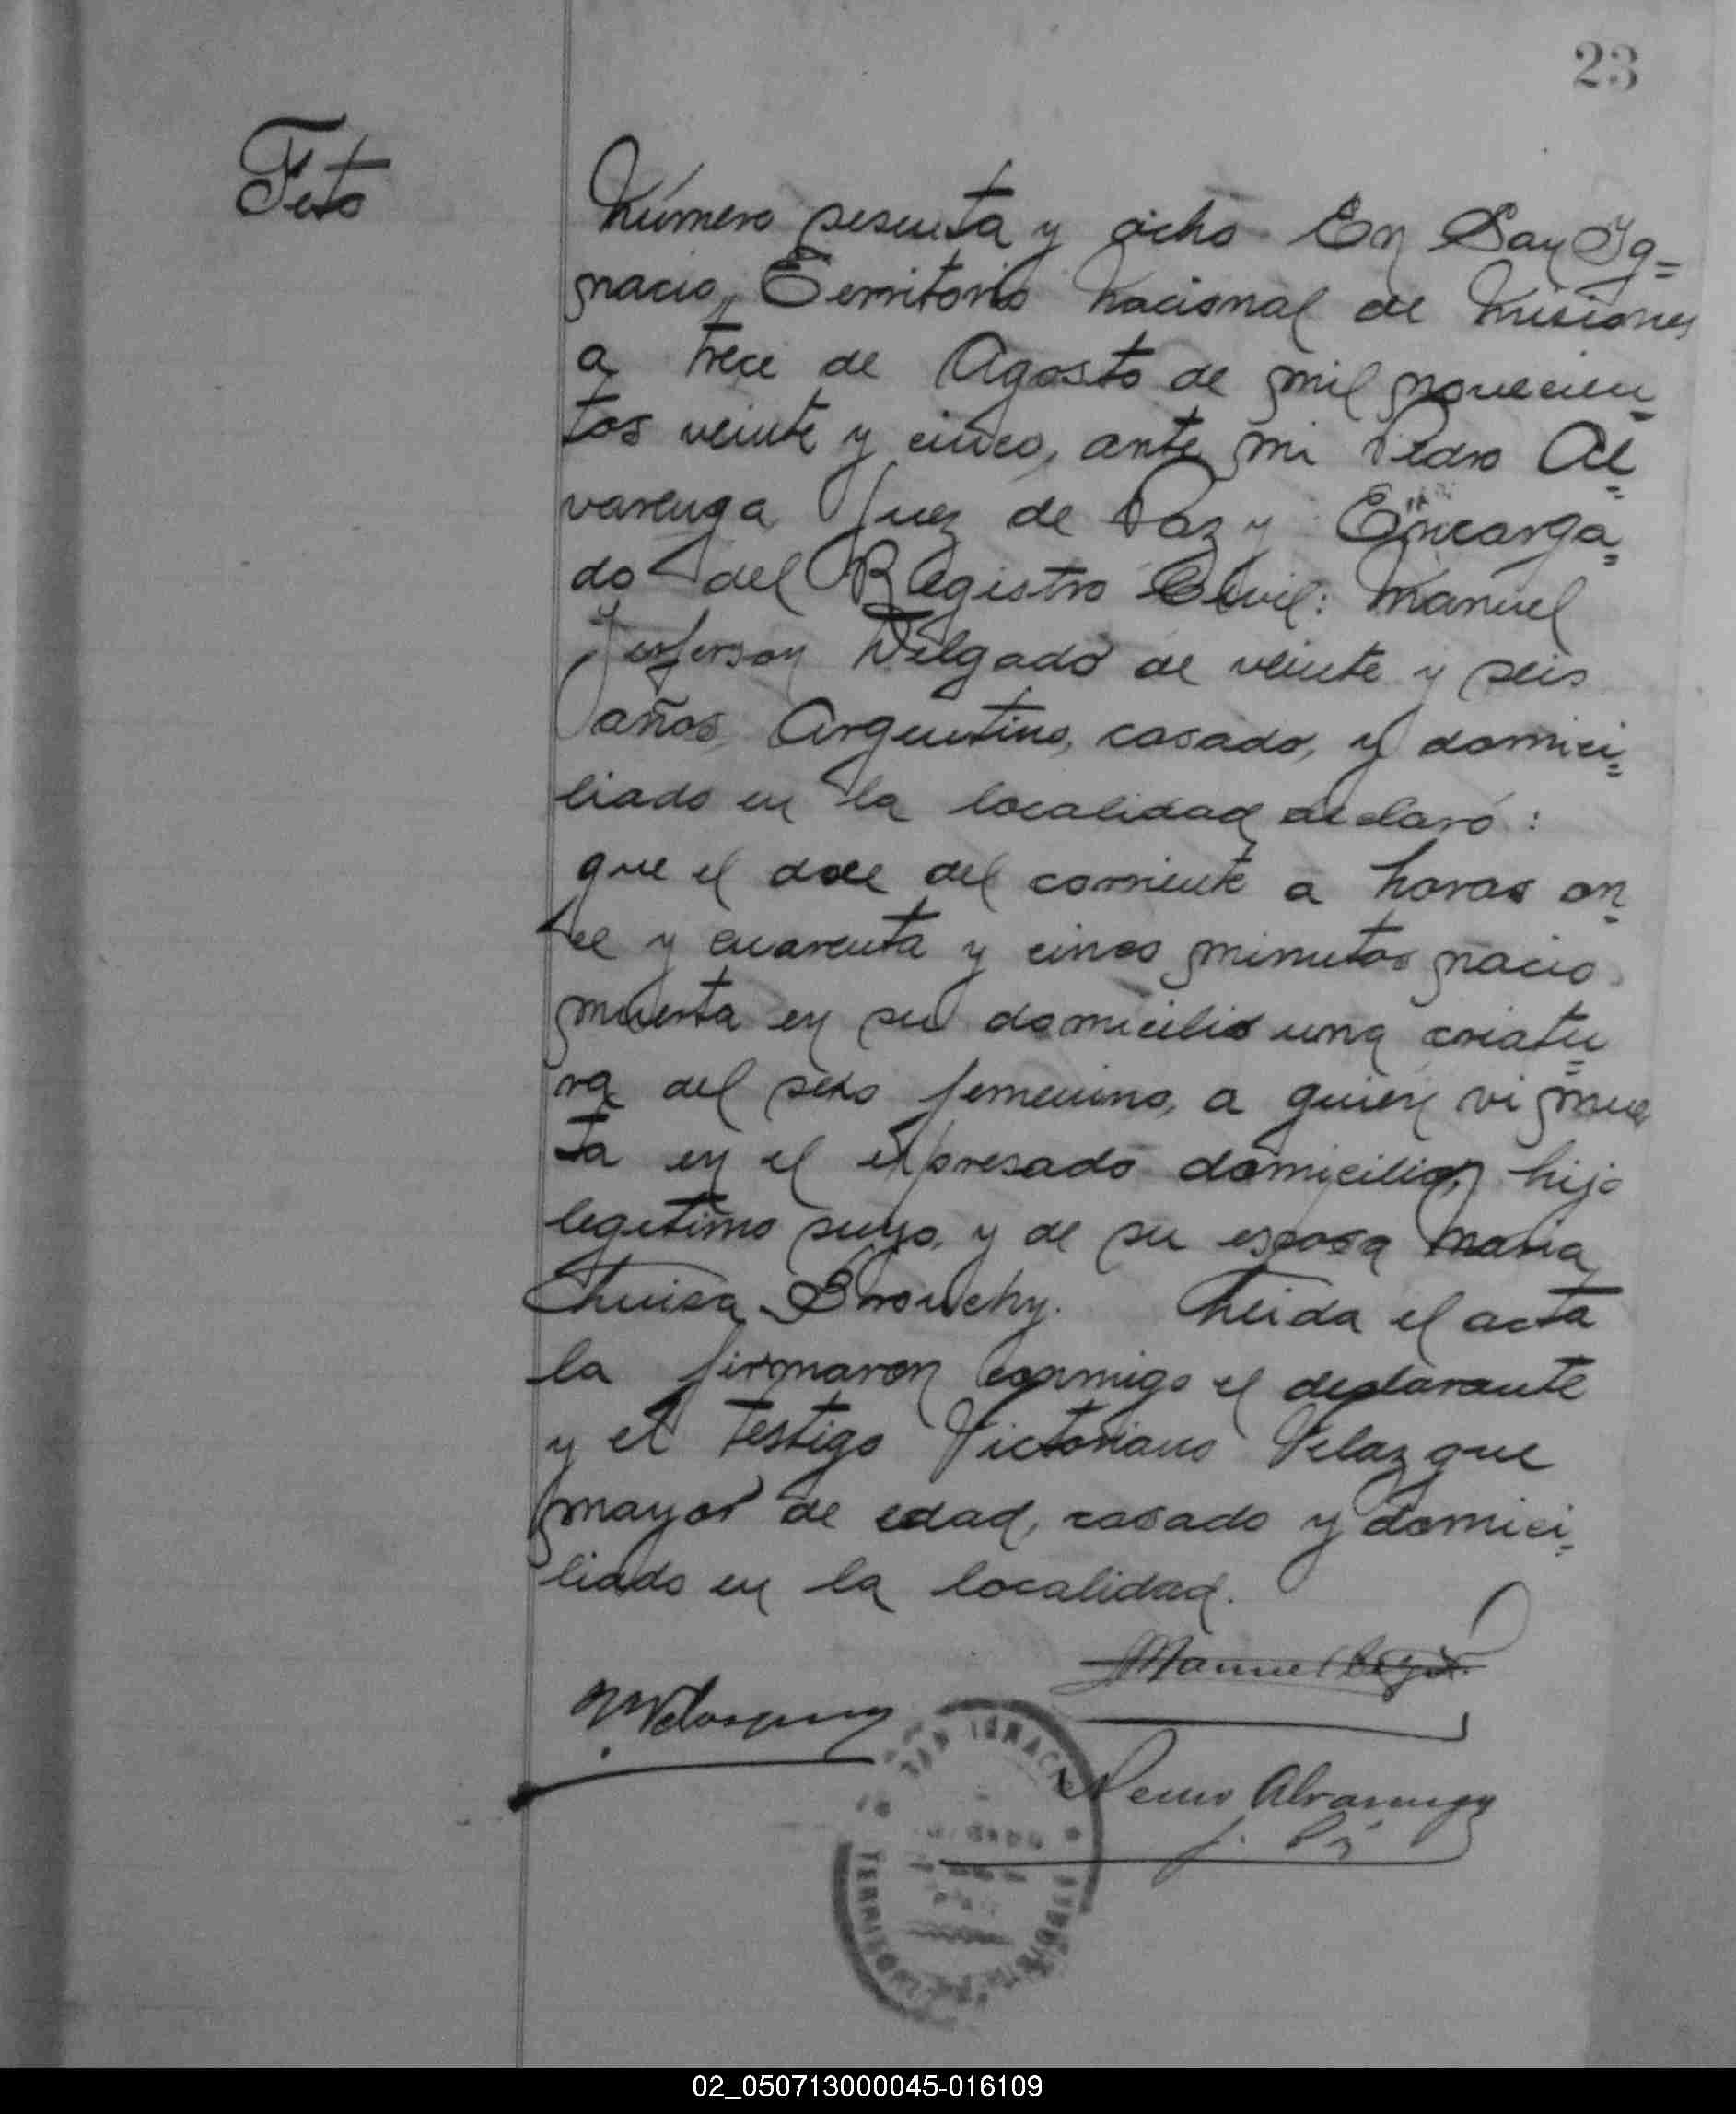 23
Feto
Número sesenta y ocho En San Ig=
nacio, Territorio Nacional de Misiones
a trece de Agosto de mil novecien=
tos veinte y cinco, ante mi Pedro Al=
varenga Juez de Paz y Encarga=
do del Registro Civil: Manuel
Jerferson Delgado de veinte y seis
años, Argentino, casado, y domici=
liado en la localidad declaró:
que el doce del corriente a horas on=
ce y cuarenta y cinco minutos nacio
muerta en su domicilio una criatu=
ra del sexo femenino, a quien vi muer
ta en el expresado domicilio, hijo
legitimo suyo, y de su esposa Maria
Luisa Brouchy. Leida el acta
la firmaron conmigo el declarante
y el testigo Victoriano Velazque
mayor de edad, casado y domici=
liado en la localidad.
Manuel
Pedro Alvarenga
SAN IGNACIO
TERRITORIO
02_050713000045-016109